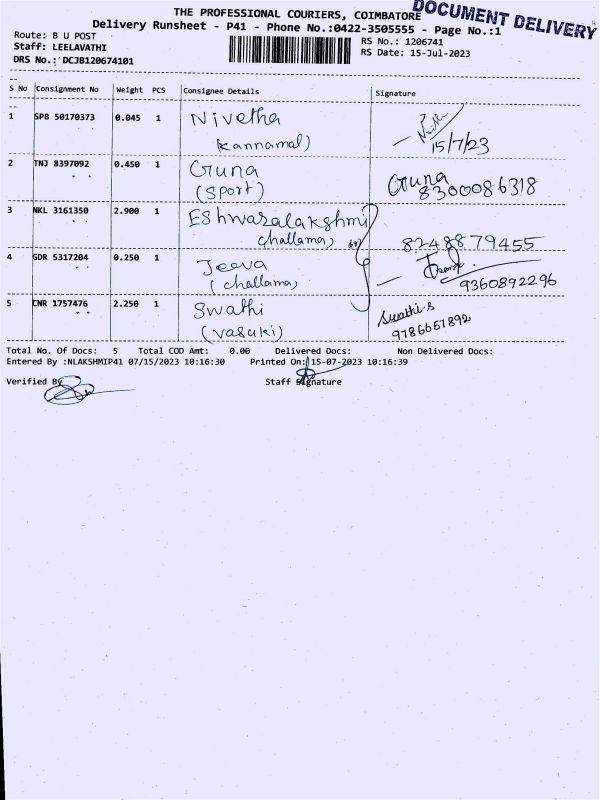 THE PROFESSIONAL COURIERS, COIMBATORE
DOCUMENT DELIVERY
Delivery Runsheet - P41 - Phone No.:0422-3505555 - Page No.:1
Route: B U POST
RS No.: 1206741
Staff: LEELAVATHI
RS Date: 15-Jul-2023
DRS No.: DCJB120674101
S No Consignment No Weight PCS Consignee Details Signature
1 SPB 50170373 0.045 1 Nivetha
(kannamal) 15/7/23
2 TNJ 8397092 0.450 1 Guna Guna
(sport) 8300086318
3 NKL 3161350 2.900 1 Eshwaralakshmi
challama) 8248879455
4 GDR 5317204 0.250 1 Jeeva
(challama) 9360892296
5 CNR 1757476 2.250 1 Swathi Swathi.s
(vasuki) 9786657892
Total No. Of Docs: 5 Total COD Amt: 0.00 Delivered Docs: Non Delivered Docs:
Entered By :NLAKSHMIP41 07/15/2023 10:16:30 Printed On: 15-07-2023 10:16:39
Verified By Staff Signature